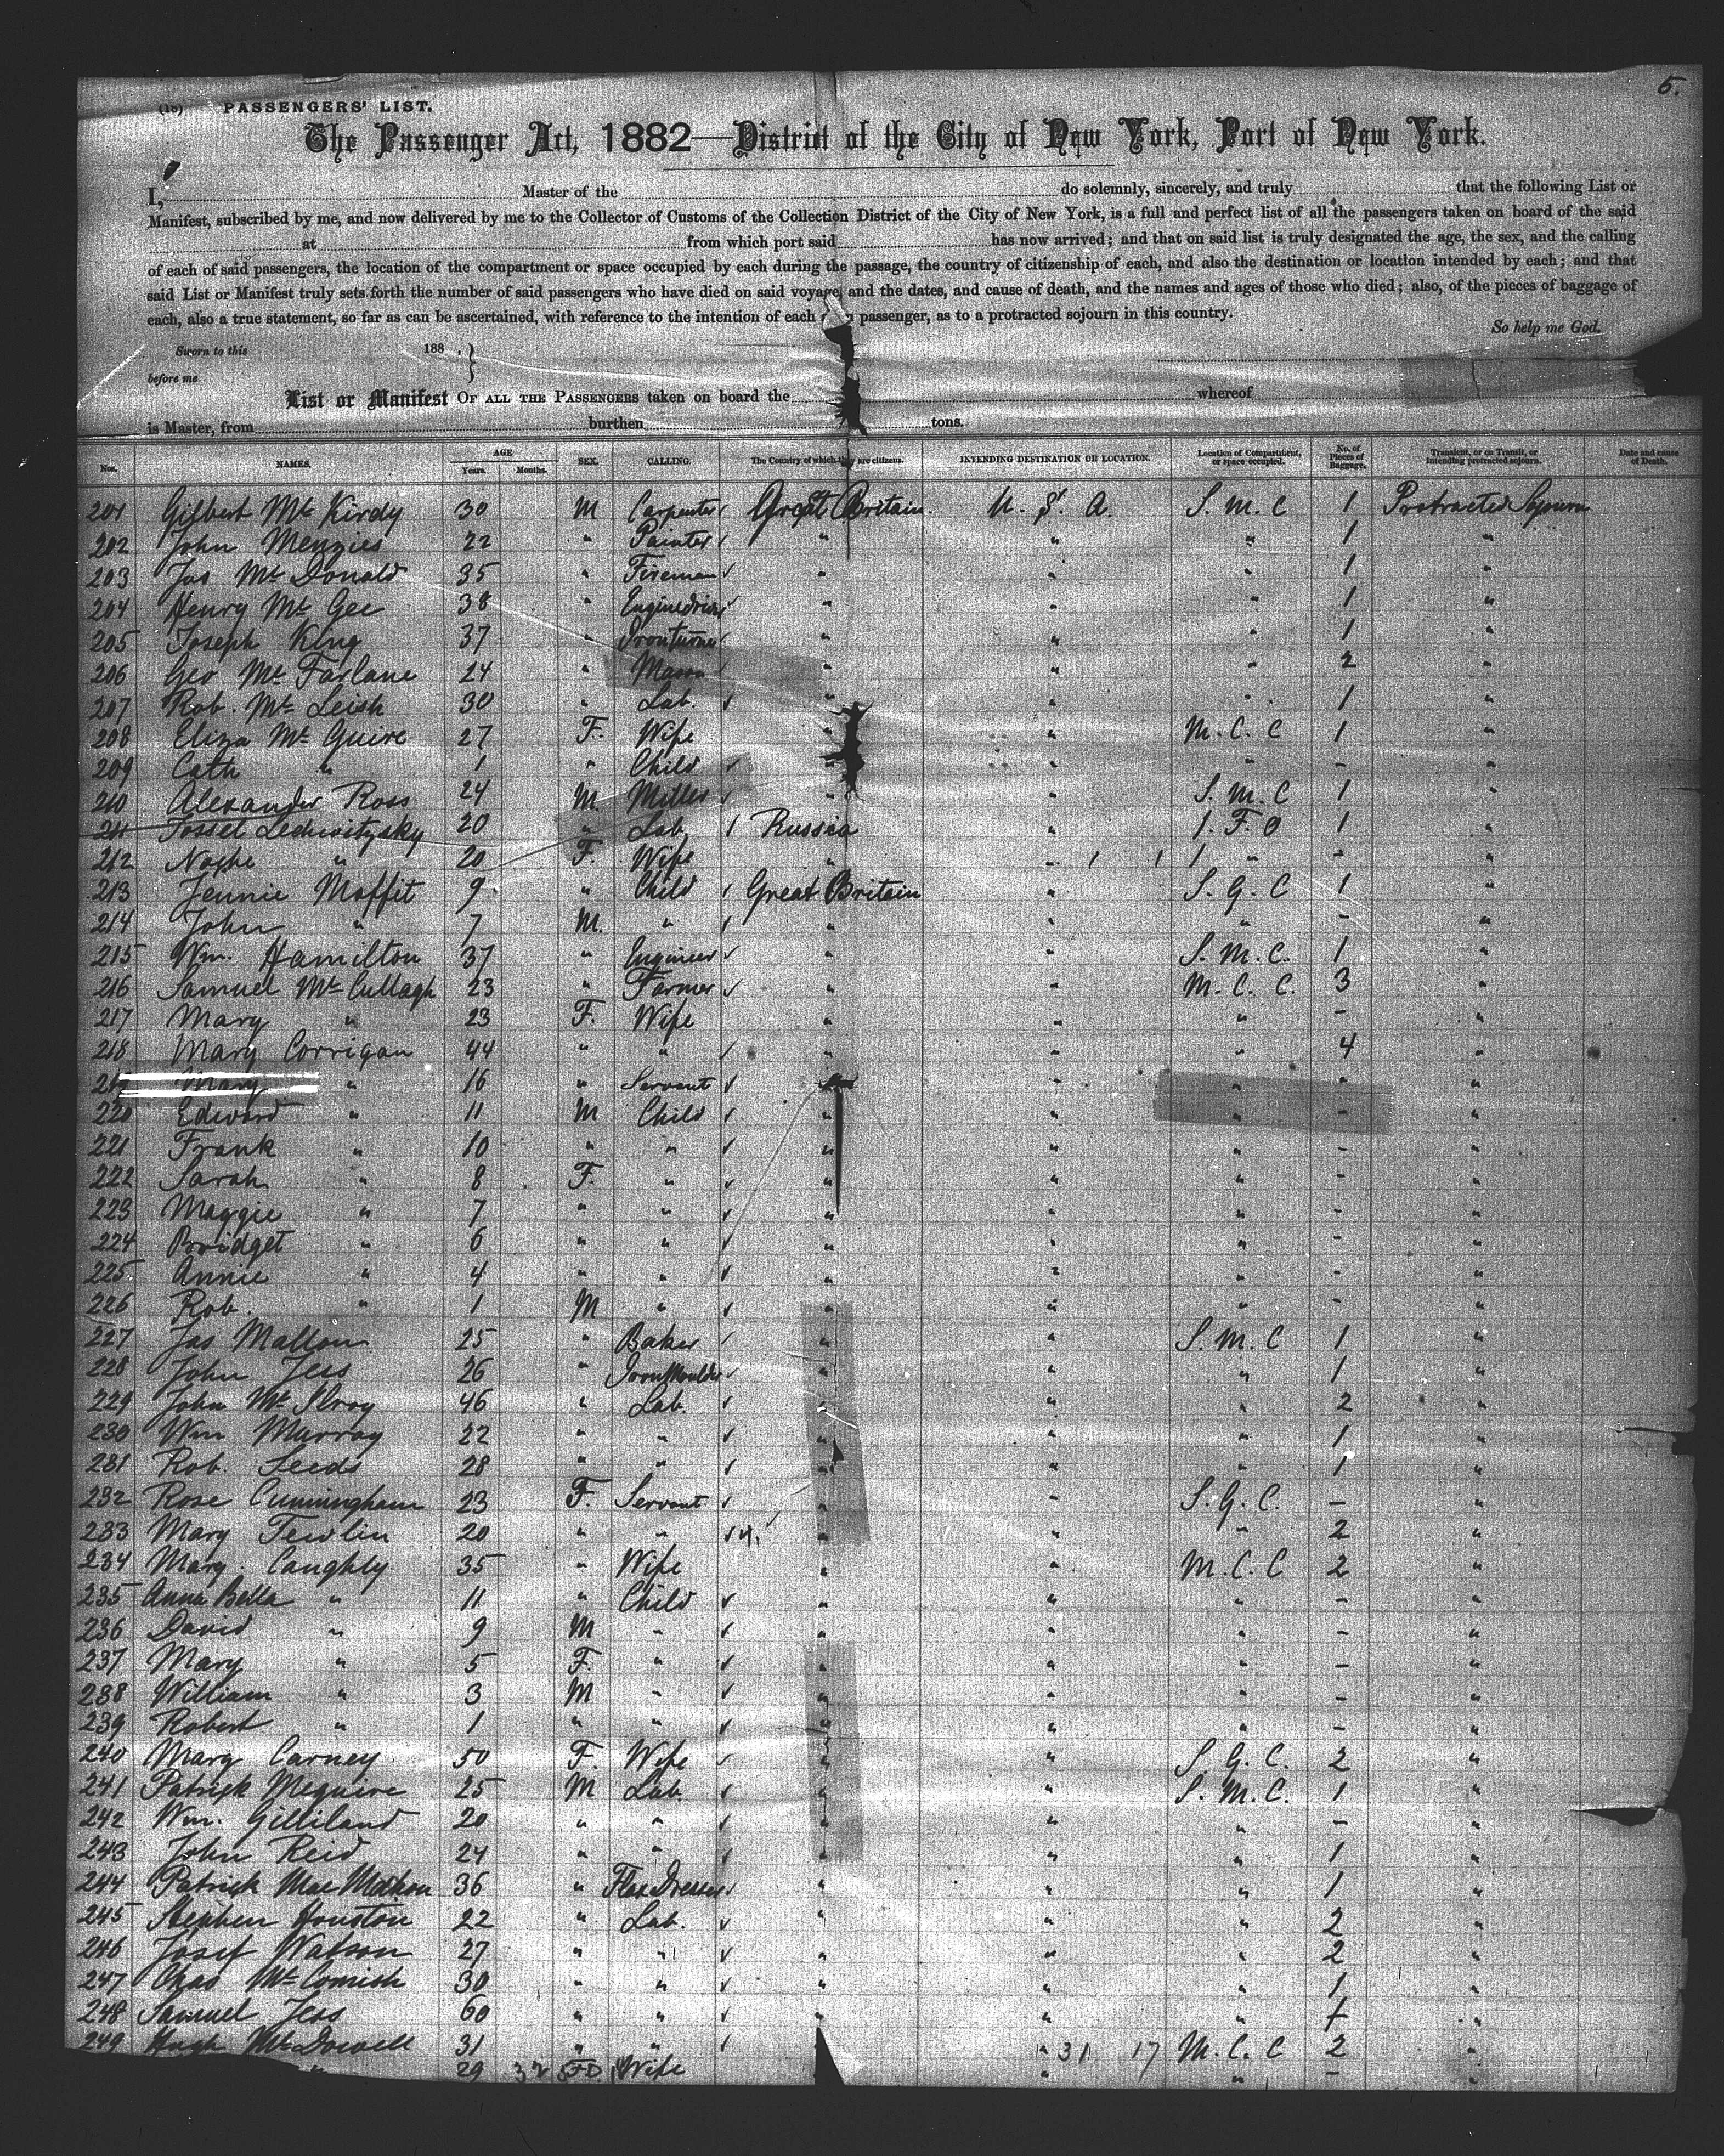 5.
(18) PASSENGERS' LIST.
The Passenger Act, 1882—District of the City of New York, Port of New York.
I, Master of the do solemnly, sincerely, and truly that the following List or
Manifest, subscribed by me, and now delivered by me to the Collector of Customs of the Collection District of the City of New York, is a full and perfect list of all the passengers taken on board of the said
at from which port said has now arrived; and that on said list is truly designated the age, the sex, and the calling
of each of said passengers, the location of the compartment or space occupied by each during the passage, the country of citizenship of each, and also the destination or location intended by each; and that
said List or Manifest truly sets forth the number of said passengers who have died on said voyage, and the dates, and cause of death, and the names and ages of those who died; also, of the pieces of baggage of
each, also a true statement, so far as can be ascertained, with reference to the intention of each passenger, as to a protracted sojourn in this country.
So help me God.
Sworn to this 188 , }
before me
List or Manifest OF ALL THE PASSENGERS taken on board the whereof
is Master, from burthen tons.
Nos. NAMES. AGE Years. Months. SEX. CALLING. The Country of which they are citizens. INTENDING DESTINATION OR LOCATION. Location of Compartment, or space occupied. No. of Pieces of Baggage. Transient, or on Transit, or intending protracted sojourn. Date and cause of Death.
201 Gilbert Mc Kirdy 30 M Carpenter Great Britain U. S. A. S. M. C 1 Protracted Sojourn
202 John Menzies 22 " Painter " " " 1 "
203 Jas Mc Donald 35 " Fireman " " " 1 "
204 Henry Mc Gee 38 " Enginedriver " " " 1 "
205 Joseph King 37 " Ironturner " " " 1 "
206 Geo Mc Farlane 24 " Mason " " " 2 "
207 Rob. Mc Leish 30 " Lab. " " " 1 "
208 Eliza Mc Guire 27 F. Wife " " M. C. C 1 "
209 Cath " 1 " Child " " " - "
210 Alexander Ross 24 M. Miller " " S. M. C 1 "
211 Jossel Ledwitzsky 20 " Lab. Russia " 1. F. O 1 "
212 " 20 F. Wife " " 1 " - "
213 Jennie Moffit 9 " Child Great Britain " S. G. C 1 "
214 John " 7 M. " " " " - "
215 Wm. Hamilton 37 " Engineer " " S. M. C. 1 "
216 Samuel Mc Cullagh 23 " Farmer " " M. C. C. 3 "
217 Mary " 23 F. Wife " " " - "
218 Mary Corrigan 44 " " " " " 4 "
21 Mary " 16 " Servant " " " " "
220 Edward " 11 M Child " " " - "
221 Frank " 10 " " " " " - "
222 Sarah " 8 F. " " " " - "
223 Maggie " 7 " " " " " - "
224 Bridget " 6 " " " " " - "
225 Annie " 4 " " " " " - "
226 Rob. " 1 M " " " " - "
227 Jas Mallon 25 " Baker " " S. M. C 1 "
228 John Jess 26 " Iron Moulder " " " 1 "
229 John Mc Ilroy 46 " Lab. " " " 2 "
230 Wm Murray 22 " " " " " 1 "
231 Rob. Leeds 28 " " " " " 1 "
232 Rose Cunningham 23 F. Servant " " S. G. C. - "
233 Mary Tewlin 20 " " " " " 2 "
234 Mary Caughly 35 " Wife " " M. C. C 2 "
235 Anna Bella " 11 " Child " " " - "
236 David " 9 M " " " " - "
237 Mary " 5 F. " " " " - "
238 William " 3 M " " " " - "
239 Robert " 1 " " " " " - "
240 Mary Carney 50 F. Wife " " S. G. C. 2 "
241 Patrick Meguire 25 M Lab. " " S. M. C. 1 "
242 Wm. Gilliland 20 " " " " " - "
243 John Reid 24 " " " " " 1 "
244 Patrick Mac Mahon 36 " Flax Dresser " " " 1 "
245 Stephen Houston 22 " Lab. " " " 2 "
246 Josef Watson 27 " " " " " 2 "
247 Chas Mc Comish 30 " " " " " 1 "
248 Samuel Jess 60 " " " " " 1 "
249 Hugh Mc Dowell 31 " " " 31 17 M. C. C 2 "
29 32 Wife " " - "